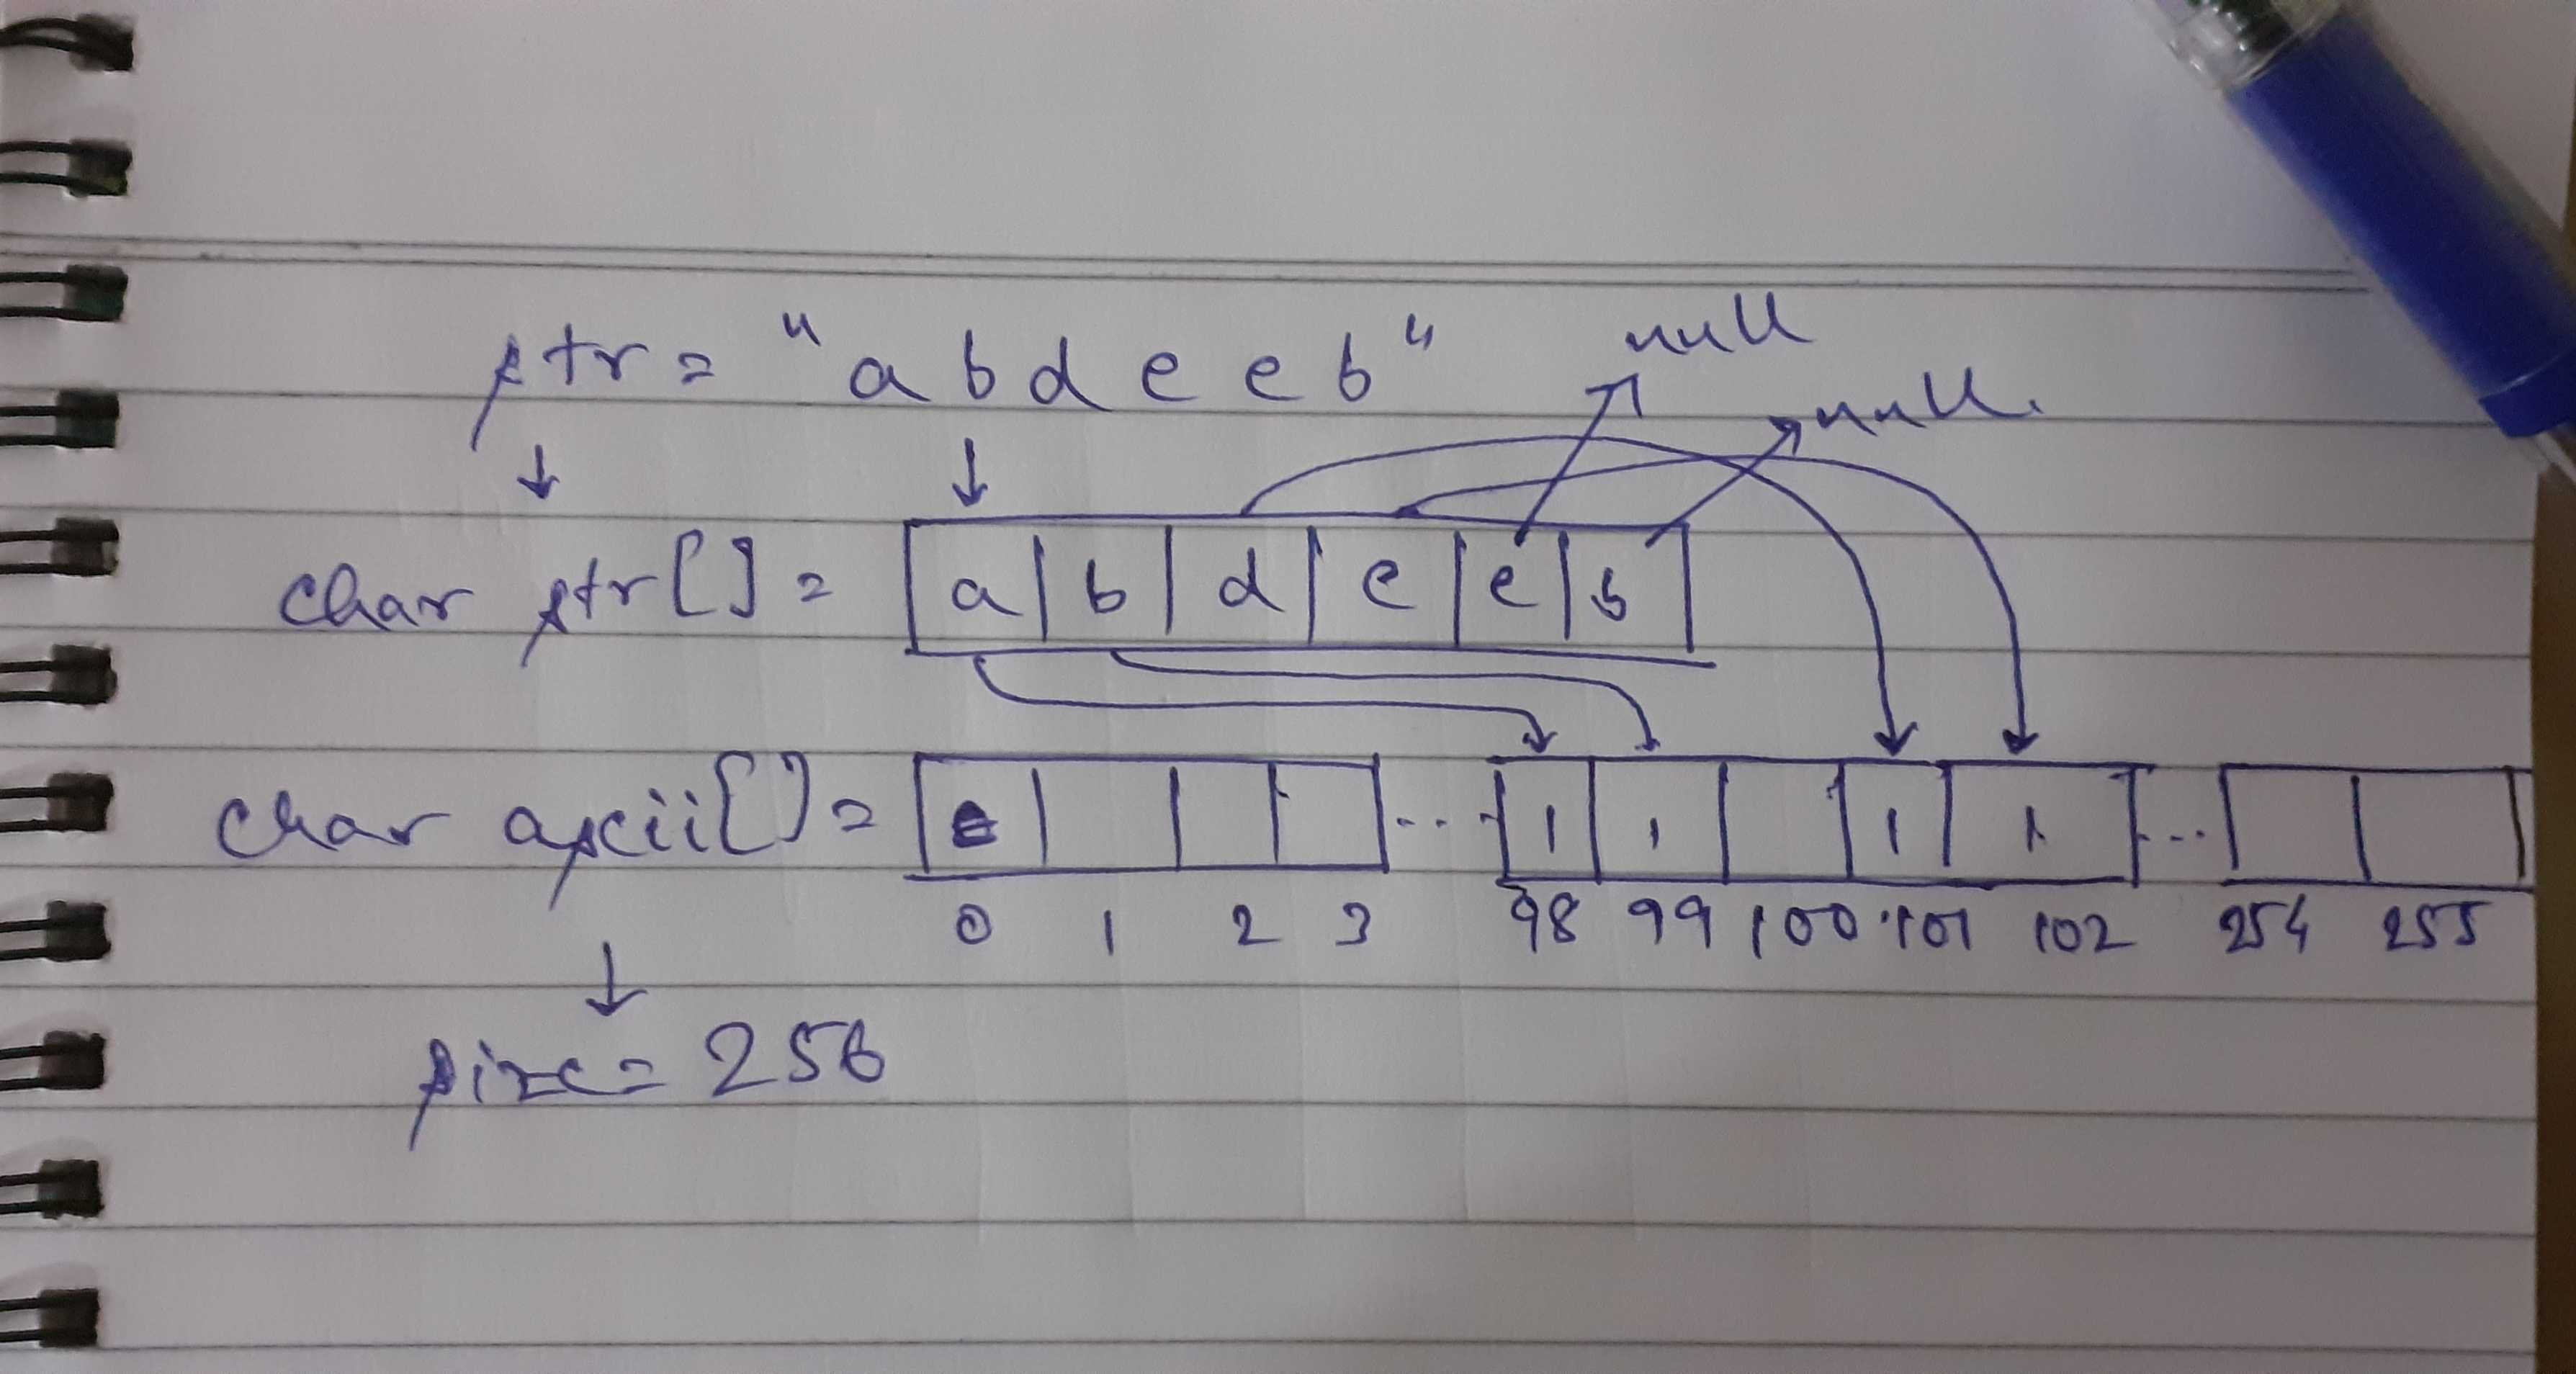 str = "a b d e e b"
null
null.
char str[] = a b d e e b
char ascii[] = ... 1 1 1 1 ...
0 1 2 3 98 99 100 101 102 254 255
size = 256